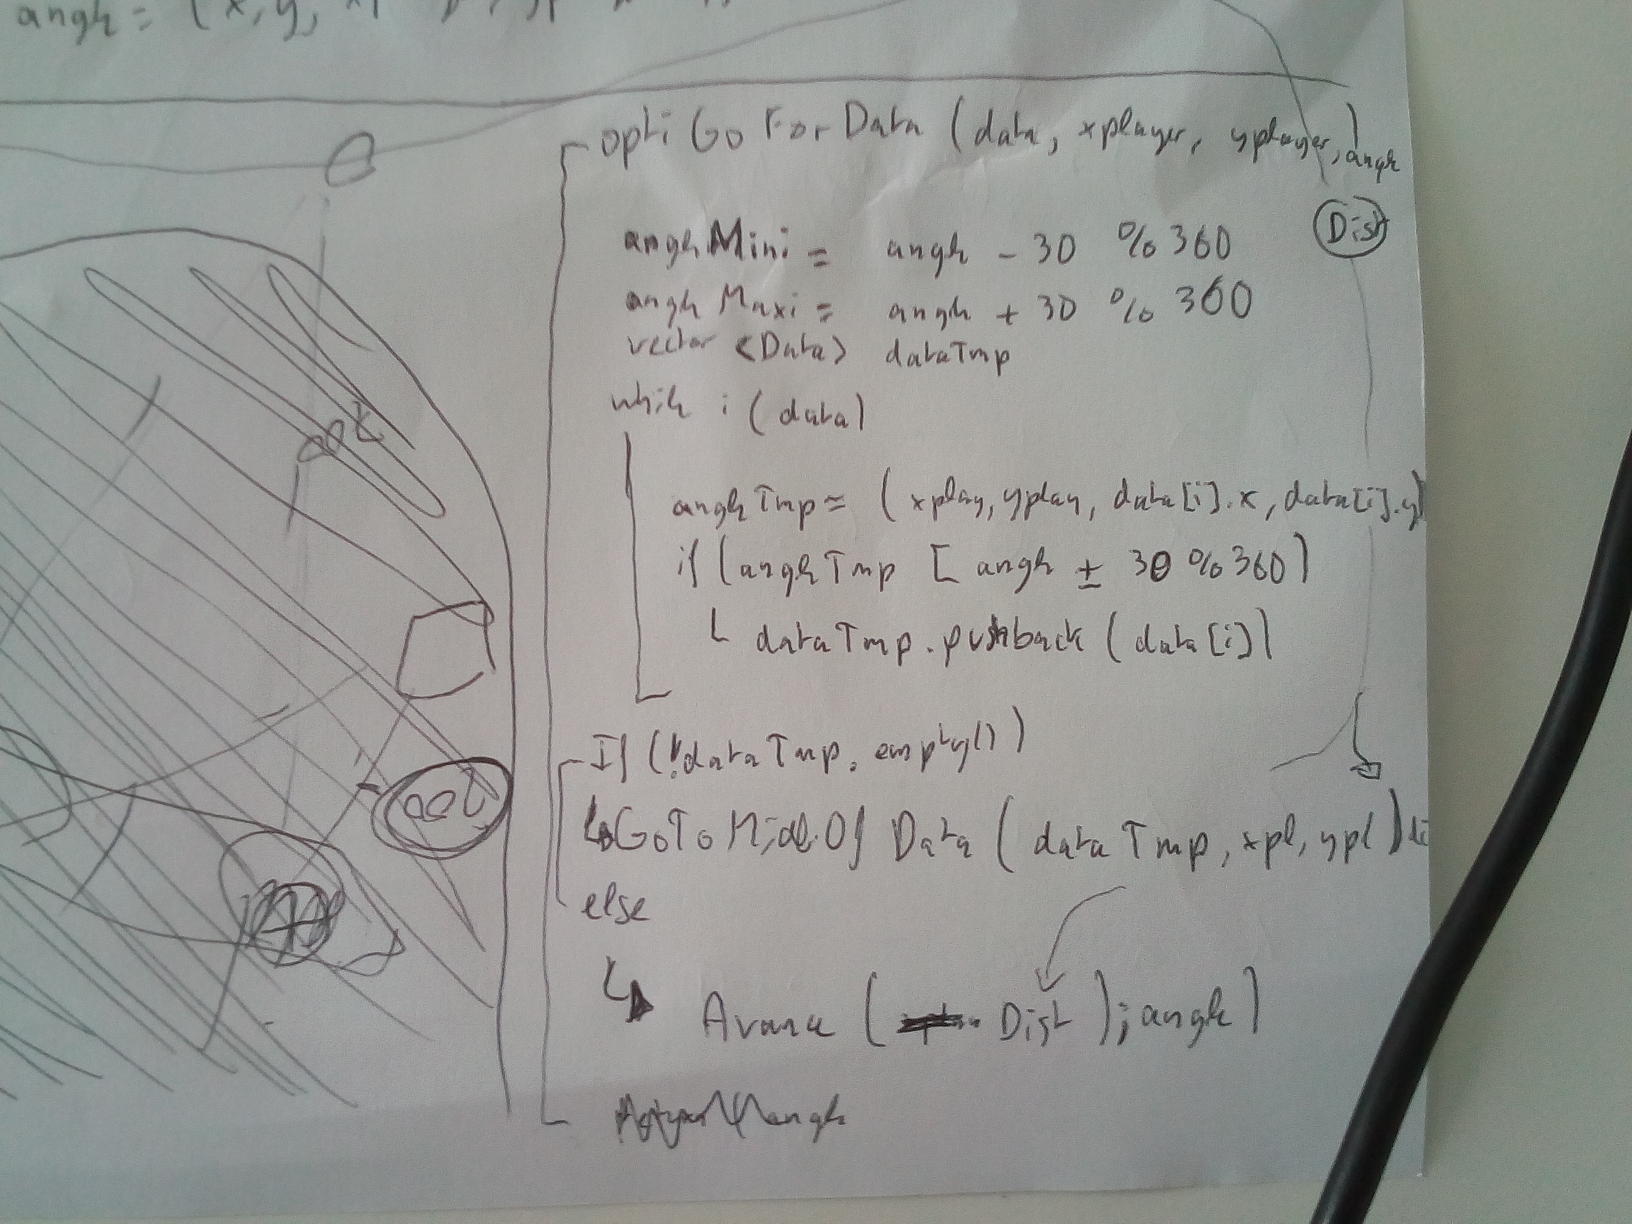 angle = (x, y,
optiGoForData (data, xplayer, yplayer, angle)
Dist
angleMini = angle - 30 % 360
angleMaxi = angle + 30 % 360
vector <Data> dataTmp
while i (data)
angleTmp = (xplay, yplay, data[i].x, data[i].y)
if (angleTmp [ angle ± 30 % 360)
dataTmp.pushback (data[i])
If (!dataTmp.empty())
GoToMidlOfData (dataTmp, xpl, ypl)
else
Avance (Dist); angle)